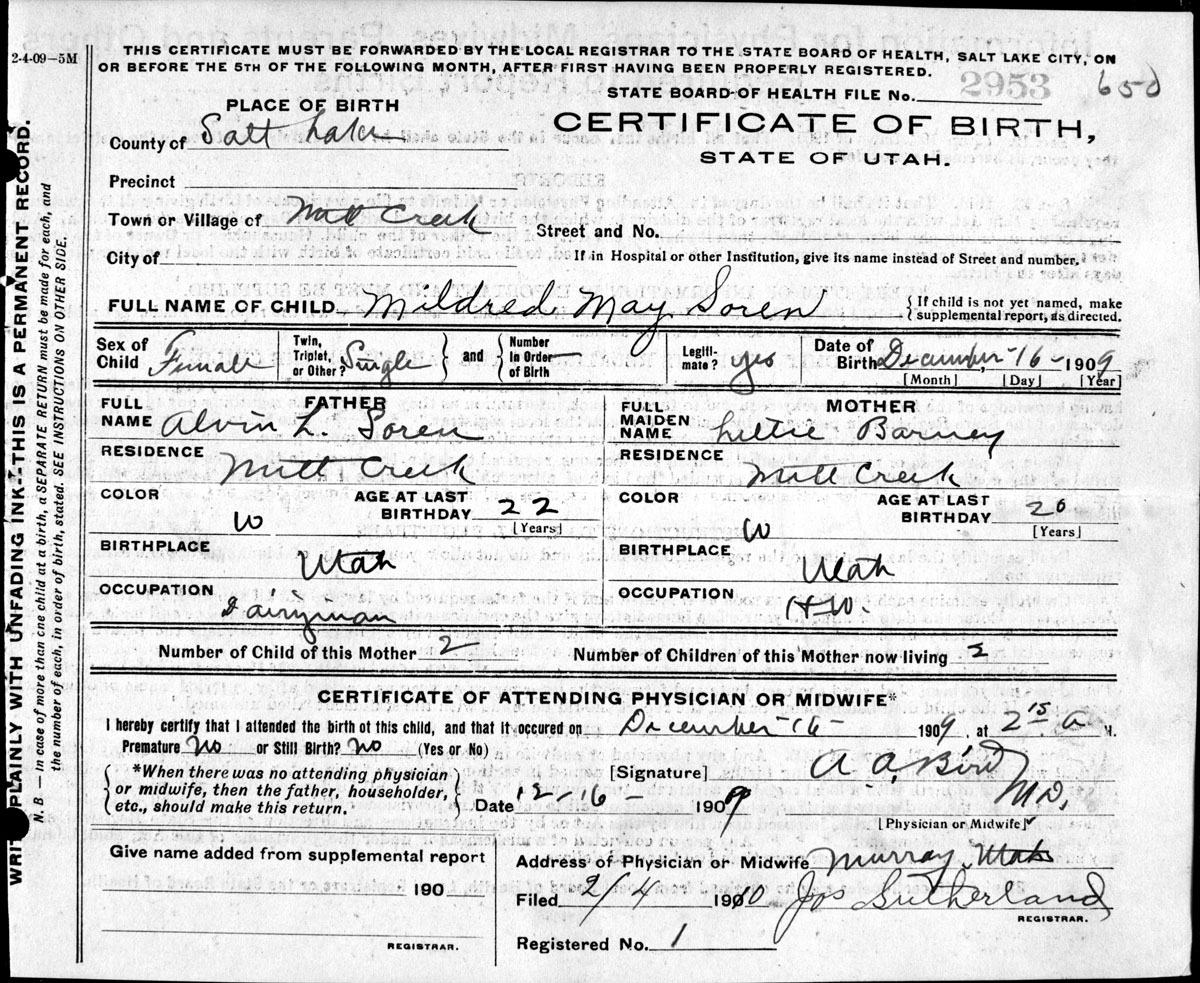 2-4-09-5M
THIS CERTIFICATE MUST BE FORWARDED BY THE LOCAL REGISTRAR TO THE STATE BOARD OF HEALTH, SALT LAKE CITY, ON
OR BEFORE THE 5TH OF THE FOLLOWING MONTH, AFTER FIRST HAVING BEEN PROPERLY REGISTERED.
STATE BOARD OF HEALTH FILE No. 2953 650
PLACE OF BIRTH
CERTIFICATE OF BIRTH,
STATE OF UTAH.
County of Salt Lake
Precinct
Town or Village of Mill Creek
Street and No.
City of
If in Hospital or other Institution, give its name instead of Street and number.
FULL NAME OF CHILD Mildred May Soren {If child is not yet named, make supplemental report, as directed.
Sex of Child Female Twin, Triplet, or Other? Single } and { Number in Order of Birth — Legiti-mate? yes Date of Birth December, -16- 1909
[Month] [Day] [Year]
FATHER
FULL NAME Alvin L. Soren
RESIDENCE Mill Creek
COLOR W AGE AT LAST BIRTHDAY 22
[Years]
BIRTHPLACE Utah
OCCUPATION Dairyman
MOTHER
FULL MAIDEN NAME Lettie Barney
RESIDENCE Mill Creek
COLOR W AGE AT LAST BIRTHDAY 20
[Years]
BIRTHPLACE Utah
OCCUPATION H.W.
Number of Child of this Mother 2 Number of Children of this Mother now living 2
CERTIFICATE OF ATTENDING PHYSICIAN OR MIDWIFE*
I hereby certify that I attended the birth of this child, and that it occured on December -16- 1909, at 2 15 a M.
Premature No or Still Birth? No (Yes or No)
{ *When there was no attending physician or midwife, then the father, householder, etc., should make this return. }
[Signature] A A. Bird M.D.
Date 12-16 1909
[Physician or Midwife]
Give name added from supplemental report
190
REGISTRAR.
Address of Physician or Midwife Murray, Utah
Filed 2/4 1910 Jos Sutherland
REGISTRAR.
Registered No. 1
WRITE PLAINLY WITH UNFADING INK--THIS IS A PERMANENT RECORD.
N. B. — In case of more than one child at a birth, a SEPARATE RETURN must be made for each, and
the number of each, in order of birth, stated. SEE INSTRUCTIONS ON OTHER SIDE.